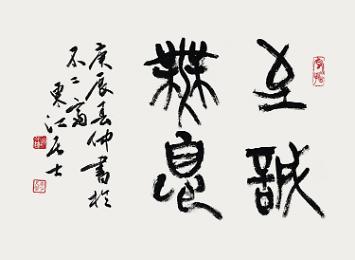 至誠
無息
庚辰春仲書於
不二窩
東江居士